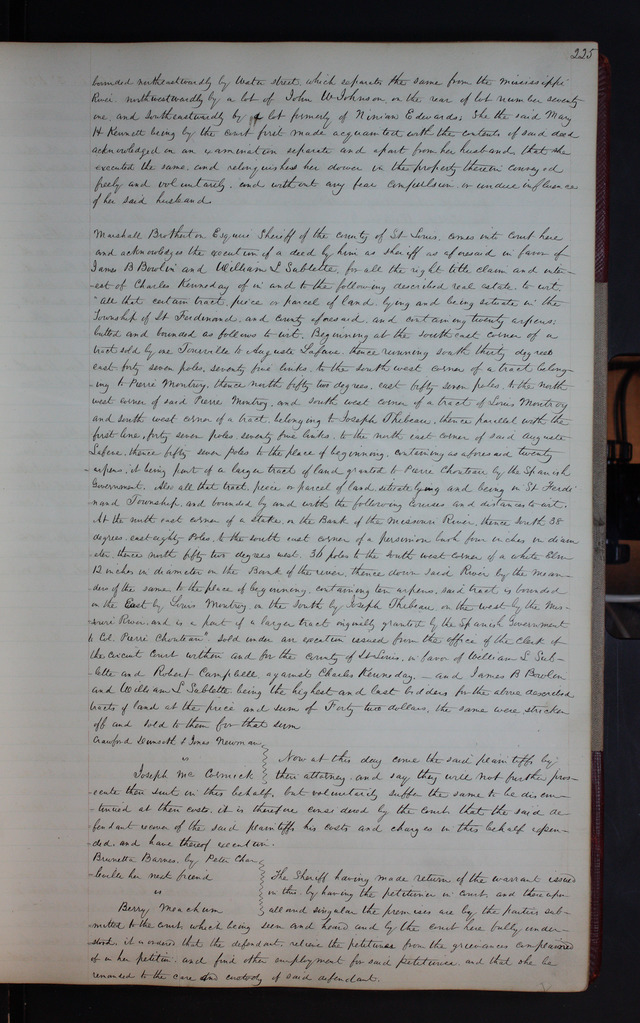 225
bounded northeastwardly by Water street, which separates the same from the Mississippi
River. northwestwardly by a lot of John W Johnson on the rear of lot number seventy
one, and Southeastwardly by a lot formerly of Ninian Edwards. She the said Mary
H Kennett being by the court first made acquainted with the contents of said deed
acknowledged on an examination separate and apart from her husband, that she
executed the same. and relinquishes her dower in the property therein conveyed
freely and voluntarily. and without any fear compulsion or undue influence
of her said husband.
Marshall Brotherton Esquire Sheriff of the county of St Louis. comes into court here
and acknowledges the execution of a deed by him as sheriff as aforesaid in favor of
James B Bowlin and William L Sublette, for all the right title claim and inter-
est of Charles Kennsday of in and to the following described real estate. to wit.
"all that certain tract, peice or parcel of land. lying and being situate in the
Township of St Ferdinand, and County aforesaid, and containing twenty arpens;
butted and bounded as follows to wit. Beginning at the south east corner of a
tract sold by one to Auguste Lafave. thence running south thirty degrees
east forty seven poles. seventy five links. to the south west corner of a tract belong-
ing to Pierre Montroy. thence north fifty two degrees. east fifty seven poles. to the north
west corner of said Pierre Montroy. and south west corner of a tract of Louis Montroy
and south west corner of a tract, belonging to Joseph Thebeau, thence parallel with the
first line, forty seven poles. seventy five links. to the north east corner of said Auguste
Lafave. thence fifty seven poles to the place of beginning. containing as aforesaid twenty
arpens, it being part of a larger tract of land granted to Pierre Chouteau by the Spanish
Government. Also all that tract, peice or parcel of land. situate lying and being in St. Ferdi-
nand Township. and bounded by and with the following courses and distances to wit.
At the north east corner of a stake, on the Bank of the Missouri River, thence South 38
degrees. east eighty Poles. to the south east corner of a persimion bush four inches in diam
eter, thence north fifty two degrees west. 36 poles to the south west corner of a white Elm
12 inches in diameter on the Bank of the river, thence down said River by the mean-
ders of the same to the place of beginning. containing ten arpens, said tract is bounded
on the East by Louis Montroy, on the South by Joseph Thebeau, on the west by the Mis-
souri River, and is a part of a larger tract originally granted by the Spanish Government
to Col. Pierre Chouteau". Sold under an execution issued from the office of the Clerk of
the circuit Court within and for the county of St Louis, in favor of William L Sub-
lette and Robert Campbell against Charles Kennsday. - and James B Bowlin
and William L Sublette being the highest and last bidders for the above described
tracts of land at the price and sum of Forty two dollars, the same were stricken
off and sold to them for that sum
Crawford & Jonas Newman
vs
Joseph Mc Cormick
Now at this day come the said plaintiffs by
their attorney. and say they will not further pros-
ecute their suit in this behalf. but voluntarily suffer the same to be discon-
-tinued at their costs. it is therefore considered by the court. that the said de-
fendant recover of the said plaintiffs his costs and charges in this behalf expen-
ded. and have thereof execution.
Brunetta Barnes. by Peter Char
leville her next friend
vs
Berry Meachum
The Sheriff having made return of the warrant issued
in this by having the petitioner in court. and thereupon
all and singular the premises are by the parties sub-
mitted to the court. which being seen and heard and by the court here fully under-
stood. it is ordered that the defendant. relieve the petitioner from the grievances complained
of in her petition. and find other employment for said petitioner. and that she be
remanded to the care and custody of said defendant.